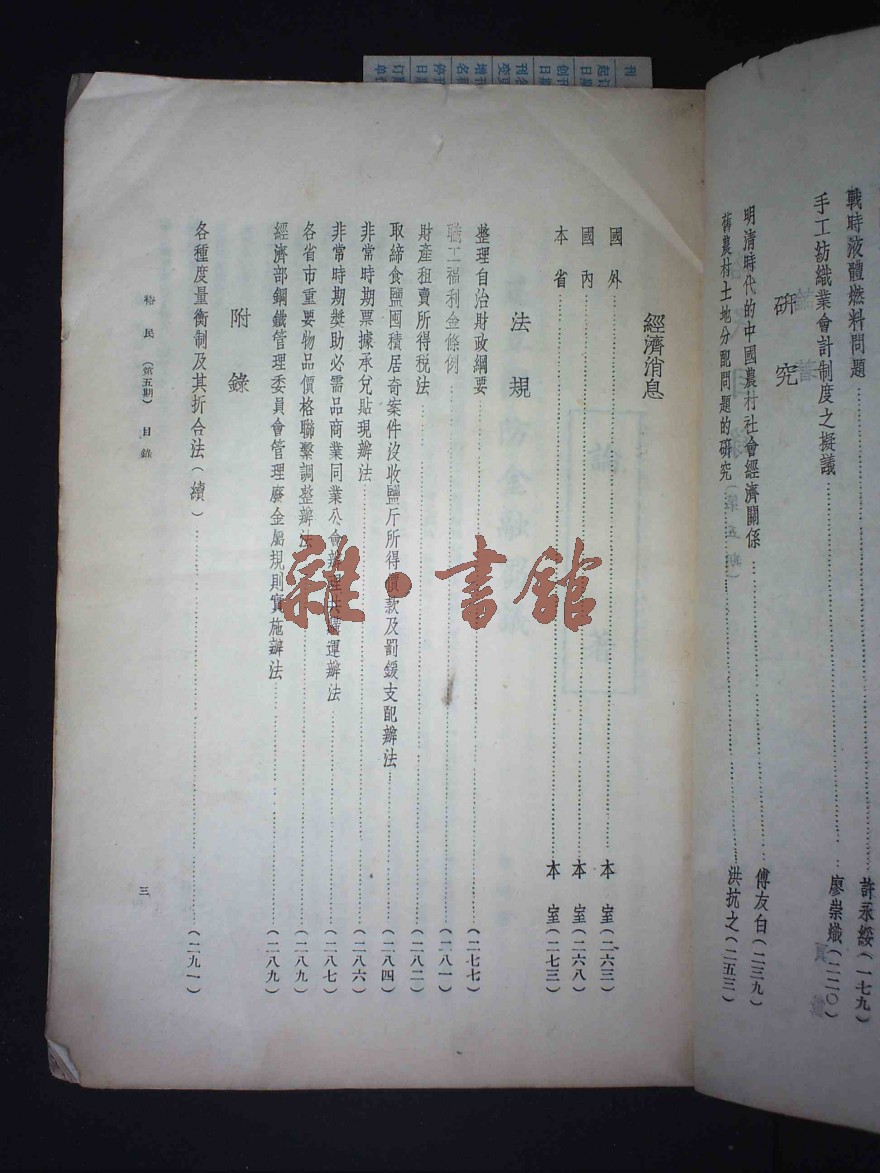 戰時液體燃料問題……許永綏(一七九)
手工紡織業會計制度之擬議……廖崇熾(二二〇)
研究
明清時代的中國農村社會經濟關係……傅友白(二三九)
舊農村土地分配問題的研究……洪抗之(二五三)
經濟消息
國外……本室(二六三)
國內……本室(二六八)
本省……本室(二七三)
法規
整理自治財政綱要……(二七七)
職工福利金條例……(二八一)
財產租賣所得稅法……(二八二)
取締食鹽囤積居奇案件沒收鹽斤所得價款及罰鍰支配辦法……(二八四)
非常時期票據承兌貼現辦法……(二八六)
非常時期獎助必需品商業同業公會辦理共購運辦法……(二八七)
各省市重要物品價格聯繫調整辦法……(二八九)
經濟部鋼鐵管理委員會管理廢金屬規則實施辦法……(二八九)
附錄
各種度量衡制及其折合法(續)……(二九一)
裕民(第五期)目錄
三
雜·書館